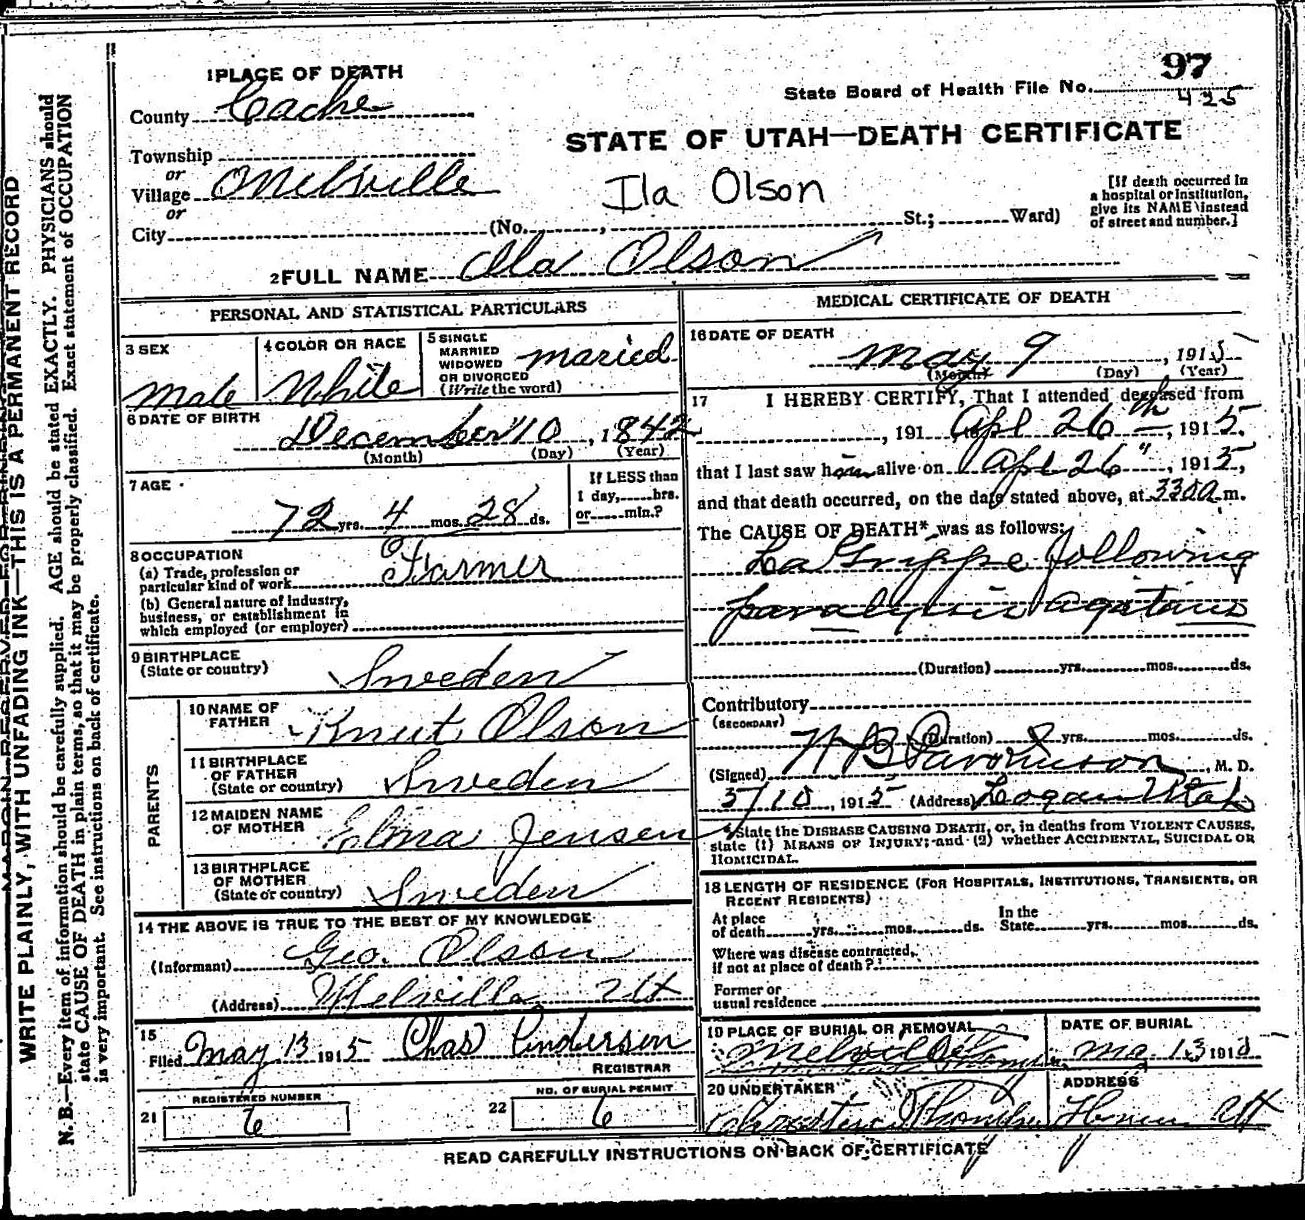 97
State Board of Health File No. 425
1 PLACE OF DEATH
County Cache
STATE OF UTAH—DEATH CERTIFICATE
Township
or
Village
or
City
Ila Olson
(No. , St.; Ward)
[If death occurred in
a hospital or institution,
give its NAME instead
of street and number.]
2 FULL NAME Ola Olson
PERSONAL AND STATISTICAL PARTICULARS
3 SEX
Male
4 COLOR OR RACE
White
5 SINGLE
MARRIED
WIDOWED
OR DIVORCED
(Write the word)
maried
6 DATE OF BIRTH
December 10, 1842
(Month) (Day) (Year)
7 AGE
72 yrs. 4 mos. 28 ds.
If LESS than
1 day, hrs.
or min.?
8 OCCUPATION
(a) Trade, profession or
particular kind of work Farmer
(b) General nature of industry,
business, or establishment in
which employed (or employer)
9 BIRTHPLACE
(State or country) Sweden
PARENTS
10 NAME OF
FATHER Knut Olson
11 BIRTHPLACE
OF FATHER
(State or country) Sweden
12 MAIDEN NAME
OF MOTHER Jensen
13 BIRTHPLACE
OF MOTHER
(State or country) Sweden
14 THE ABOVE IS TRUE TO THE BEST OF MY KNOWLEDGE
(Informant) Geo. Olson
(Address) Ut
15
Filed May 13 1915 Chas Anderson
REGISTRAR
REGISTERED NUMBER
21 6
NO. OF BURIAL PERMIT
22 6
MEDICAL CERTIFICATE OF DEATH
16 DATE OF DEATH
May 9, 1915
(Month) (Day) (Year)
17 I HEREBY CERTIFY, That I attended deceased from
, 191 Apl 26th, 1915,
that I last saw him alive on Apl 26", 1915,
and that death occurred, on the date stated above, at 330a m.
The CAUSE OF DEATH* was as follows:
La Grippe following
paralysis agitans
(Duration) yrs. mos. ds.
Contributory
(SECONDARY)
(Duration) yrs. mos. ds.
(Signed) , M. D.
5/10, 1915 (Address) Logan Utah
*State the DISEASE CAUSING DEATH, or, in deaths from VIOLENT CAUSES,
state (1) MEANS OF INJURY; and (2) whether ACCIDENTAL, SUICIDAL OR
HOMICIDAL.
18 LENGTH OF RESIDENCE (FOR HOSPITALS, INSTITUTIONS, TRANSIENTS, OR
RECENT RESIDENTS)
At place
of death yrs. mos. ds.
In the
State yrs. mos. ds.
Where was disease contracted,
if not at place of death?
Former or
usual residence
19 PLACE OF BURIAL OR REMOVAL
DATE OF BURIAL
13 191
20 UNDERTAKER
ADDRESS
Ut
READ CAREFULLY INSTRUCTIONS ON BACK OF CERTIFICATE
WRITE PLAINLY, WITH UNFADING INK—THIS IS A PERMANENT RECORD
N. B.—Every item of information should be carefully supplied. AGE should be stated EXACTLY. PHYSICIANS should
state CAUSE OF DEATH in plain terms, so that it may be properly classified. Exact statement of OCCUPATION
is very important. See instructions on back of certificate.